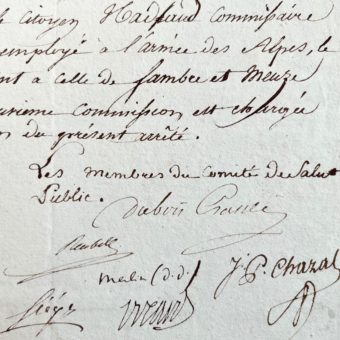 le citoyen Commissaire
employé à l'armée des Alpes, le
nt a celle de Sambre et Meuze
Commission est chargée
n du présent arrêté.
Les membres du Comité de Salut
Public.
Dubois Crancé
Reubell
Merlin (d.d.) J. P. Chazal
Sieÿes